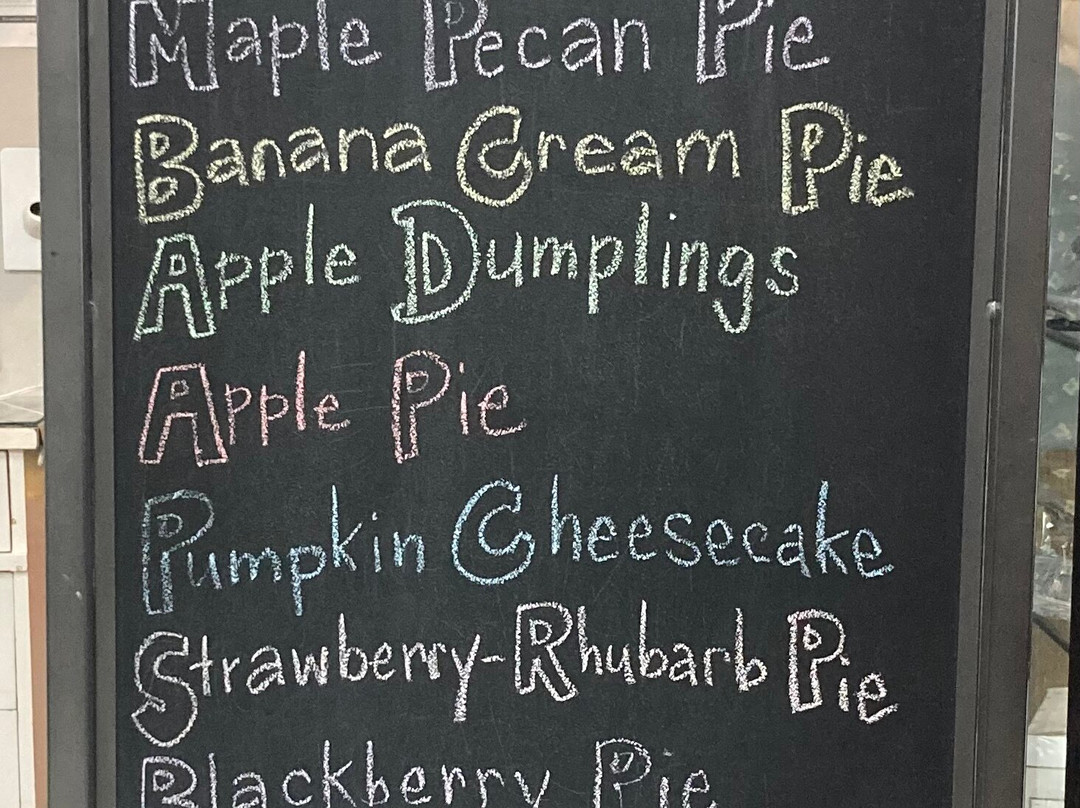 Maple Pecan Pie
Banana Cream Pie
Apple Dumplings
Apple Pie
Pumpkin Cheesecake
Strawberry-Rhubarb Pie
Blackberry Pie